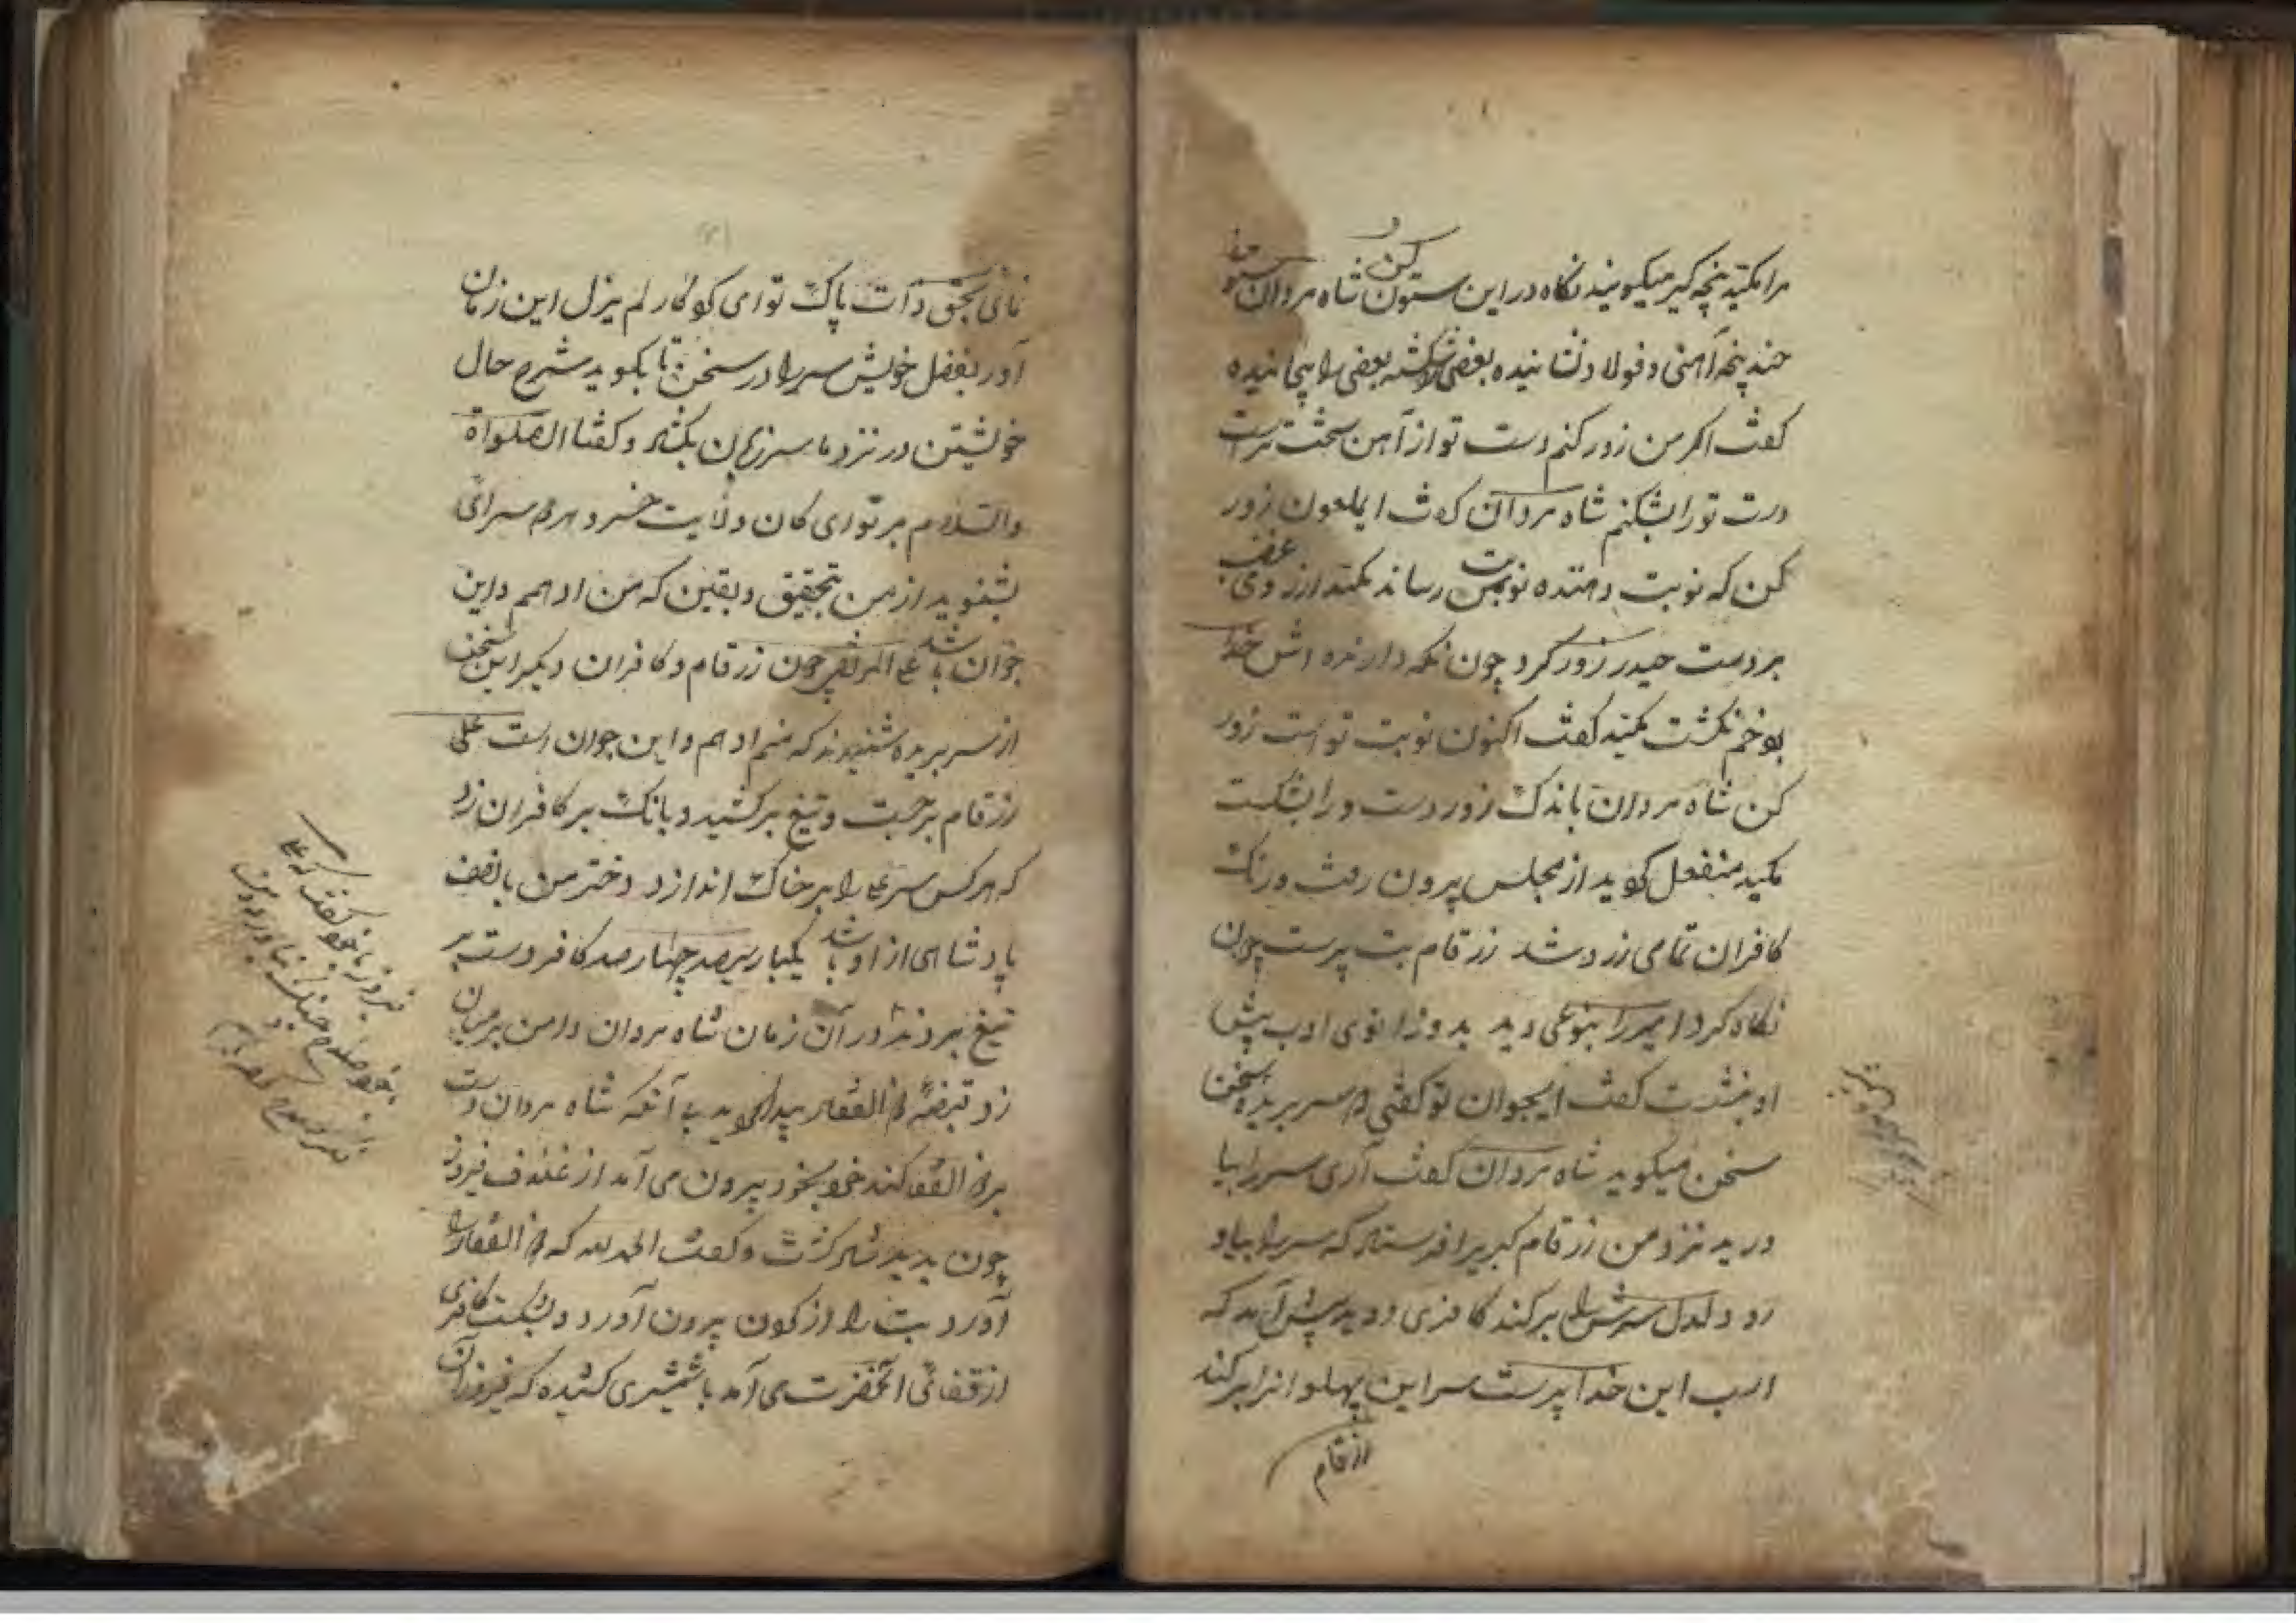 مرا مکید پنجه گیر میکویند نکاه در این ستون کن شاه مردان
چند پنجه آهنی و فولاد نشانیده بعضی شکسته بعضی را پیچانیده
کفت اکر من زور کنم دست تو از آهن سخت تر است
دست تورا بشکنم شاه مردان کفت ایملعون زور
کن که نوبت دهنده نوبت بمن رساند مکید از روی غضب
بر دست حیدر زور کرد چون نکه دارنده اش خدا
بود خم نکشت مکید کفت اکنون نوبت تو است زور
کن شاه مردان باندک زور دست ورا بشکست
مکید منفعل کردید از مجلس بیرون رفت و رنک
کافران تمامی زرد شد زرقام بت پرست چون
نکاه کرد امیر را بنوعی دید بدو زانوی ادب پیش
او بنشست کفت ایجوان تو کفتی سر بریده سخن
سخن میکوید شاه مردان کفت آری سر را بیا
درید نزد من زرقام کبریرا فرستاد که سر را بیاو
رد دلدل سرش را برکند کافری دوید پیش آمد که
اسب این خدا پرست سر این پهلوانرا برکند
زرقام
نمائی بحق ذات پاک تو ای کردکار لم یزل این زمان
آور بفضل خویش سر را در سخن تا بکوید شرح حال
خویشتن در نزد ما سر زبان بکشاد و کفتا الصلواة
والسلام بر تو ای کان ولایت خسرو هر دو سرای
بشنوید از من بتحقیق و یقین که من ادهمم و این
جوان باشد علی المرتضی چون زرقام و کافران دیکر این سخن
از سر بریده شنیدند که منم ادهم و این جوان است علی
زرقام برجست و تیغ برکشید و بانک بر کافران زد
که هر کس سر علی را بر خاک اندازد دختر من با نصف
پادشاهی از او باشد یکبار سیصد چهار صد کافر دست بر
تیغ بردند در آن زمان شاه مردان دامن بر میان
زد قبضه ذوالفقار پیدا کردید بی آنکه شاه مردان دست
بر ذوالفقار کند خود بخود بیرون می آمد از غلاف فیروز
چون بدید شاد کشت و کفت الحمد لله که ذوالفقار را
آورد بت را از کون بیرون آورد و بشکست کافری
از قفائی آنحضرت می آمد با شمشیری کشیده که فیروز آن
فیروز با خود کفت که علی